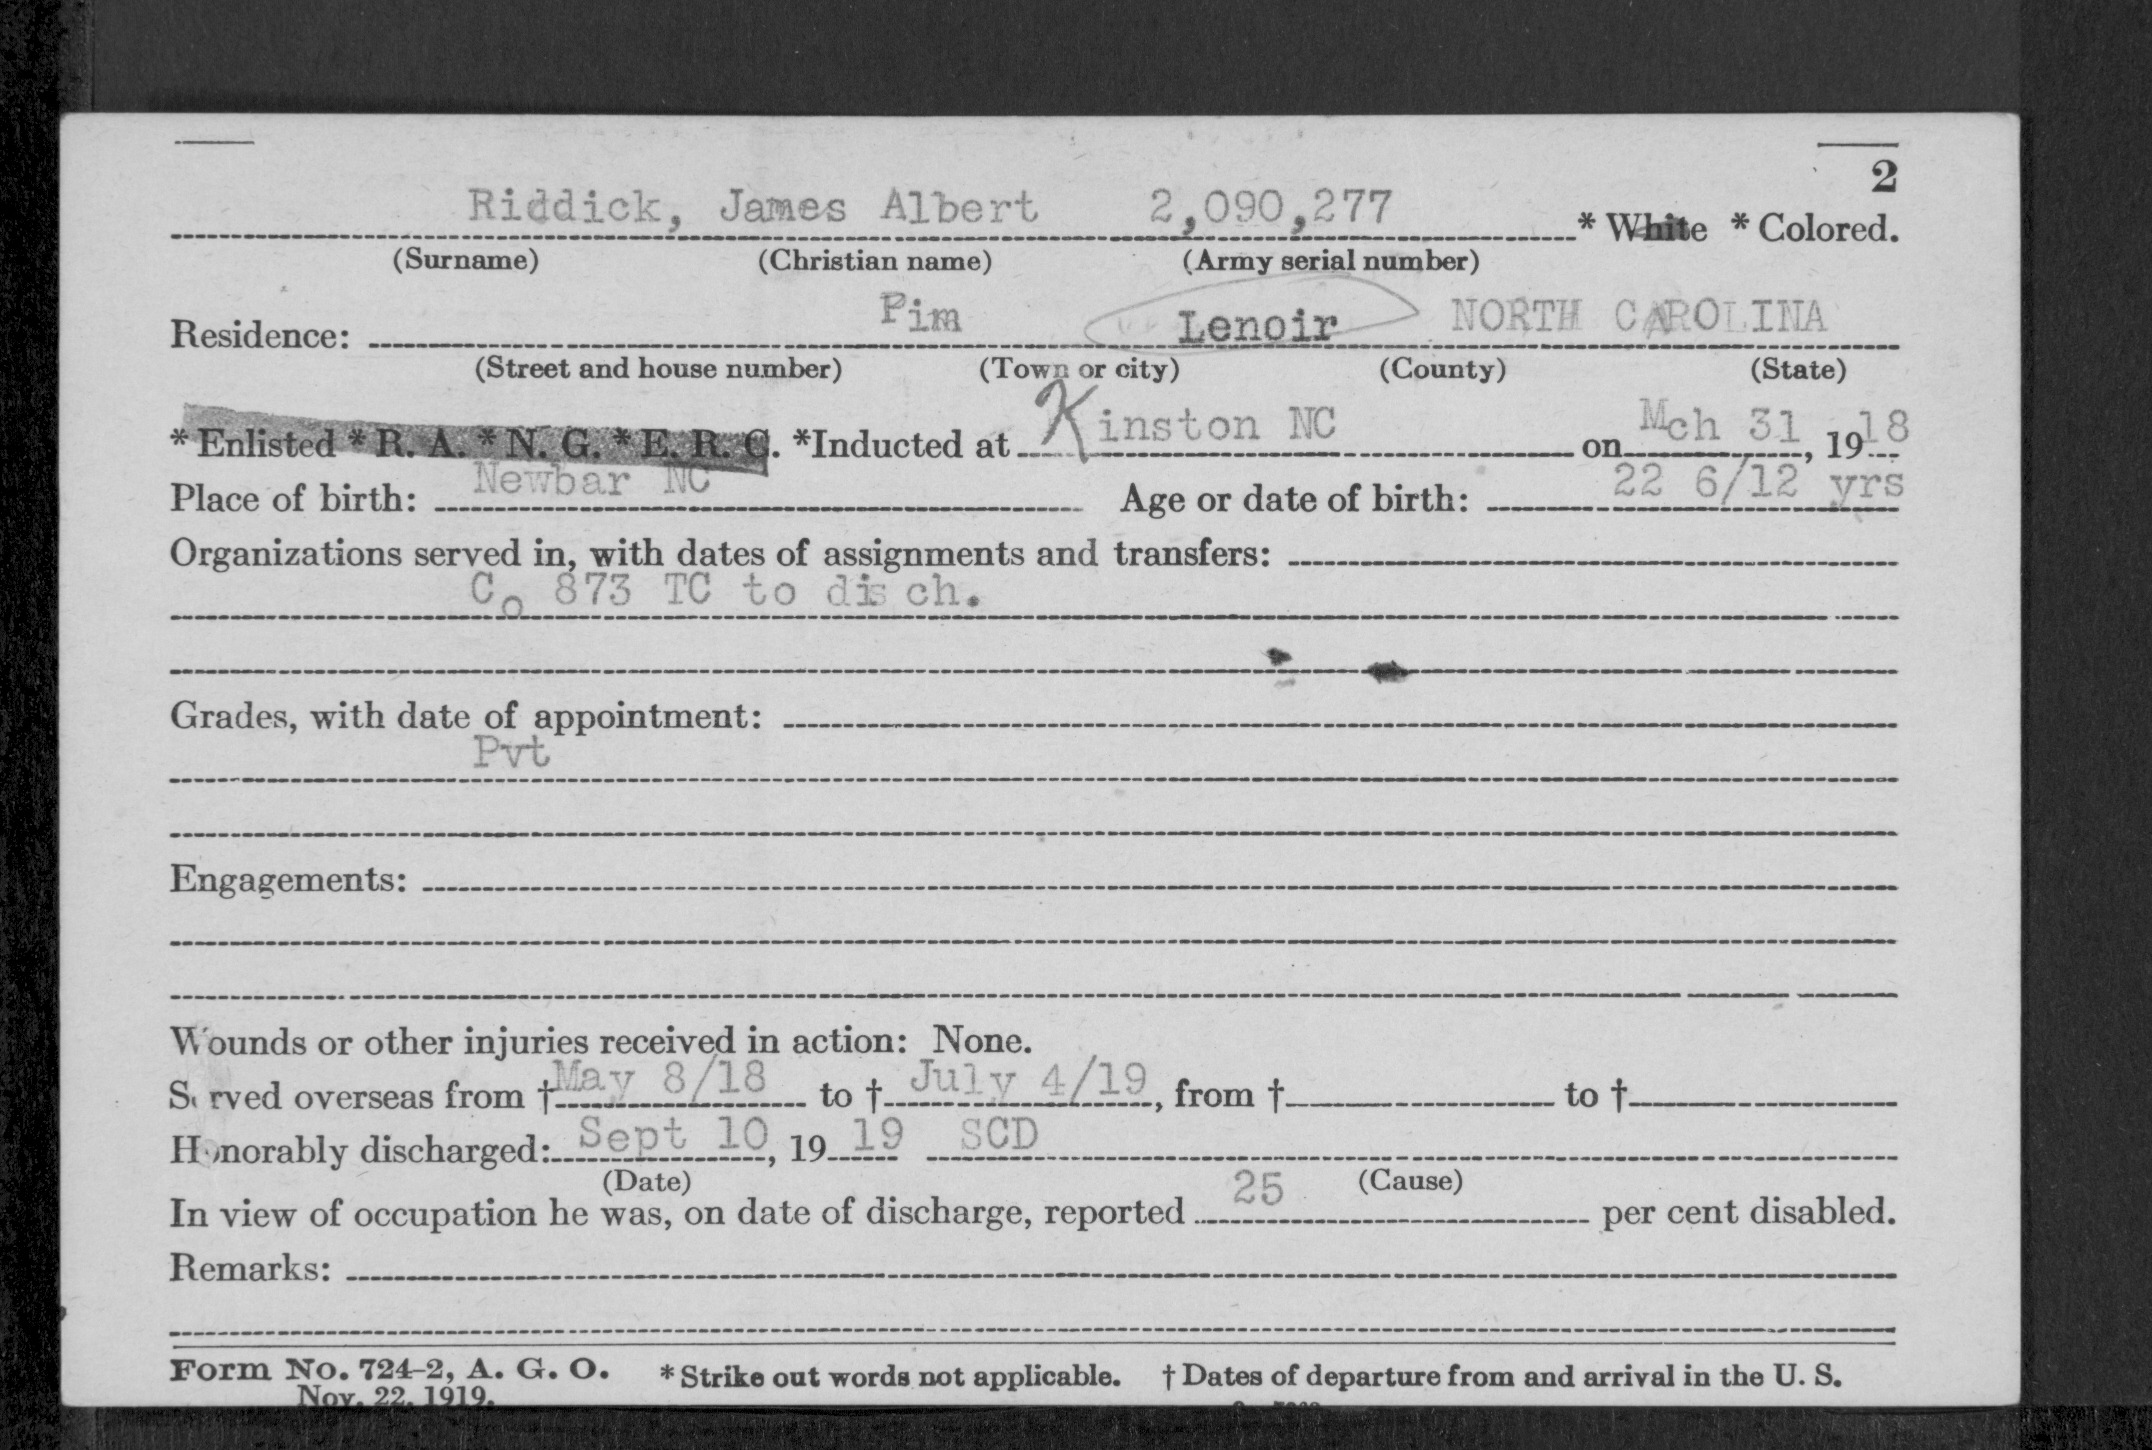 2
Riddick, James Albert 2,090,277 * White * Colored.
(Surname) (Christian name) (Army serial number)
Residence: Pim Lenoir NORTH CAROLINA
(Street and house number) (Town or city) (County) (State)
* Enlisted * R. A. * N. G. * E. R. C. *Inducted at Kinston NC on Mch 31, 1918
Place of birth: Newbar NC Age or date of birth: 22 6/12 yrs
Organizations served in, with dates of assignments and transfers:
Co 873 TC to disch.
Grades, with date of appointment:
Pvt
Engagements:
Wounds or other injuries received in action: None.
Served overseas from † May 8/18 to † July 4/19, from † to †
Honorably discharged: Sept 10, 19 19 SCD
(Date) (Cause)
In view of occupation he was, on date of discharge, reported 25 per cent disabled.
Remarks:
Form No. 724-2, A. G. O. * Strike out words not applicable. † Dates of departure from and arrival in the U. S.
Nov. 22, 1919.